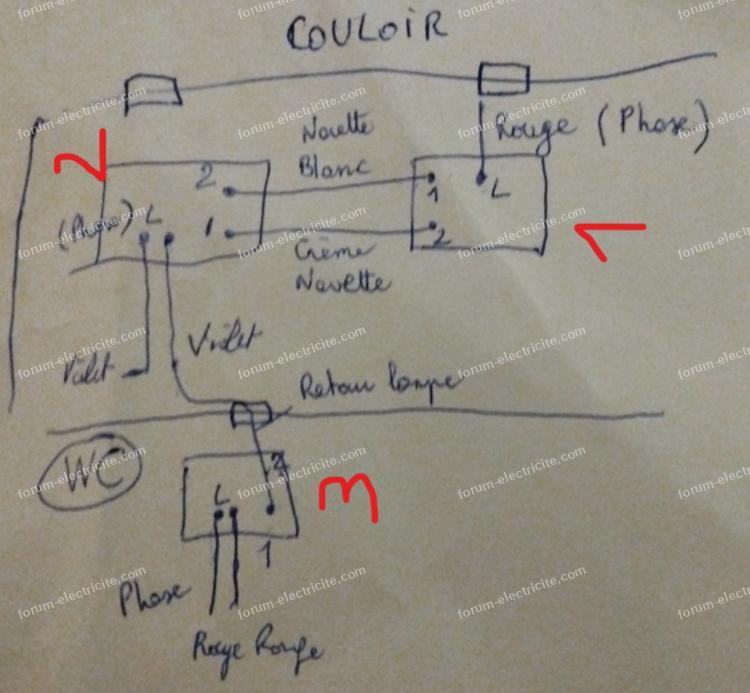 COULOIR
Navette
Blanc
Rouge (Phase)
2
2
1
L
1
L
1
2
Crème
Navette
Violet
Violet
Retour lampe
WC
L
3
1
Phase
Rouge Rouge
forum-electricite.com